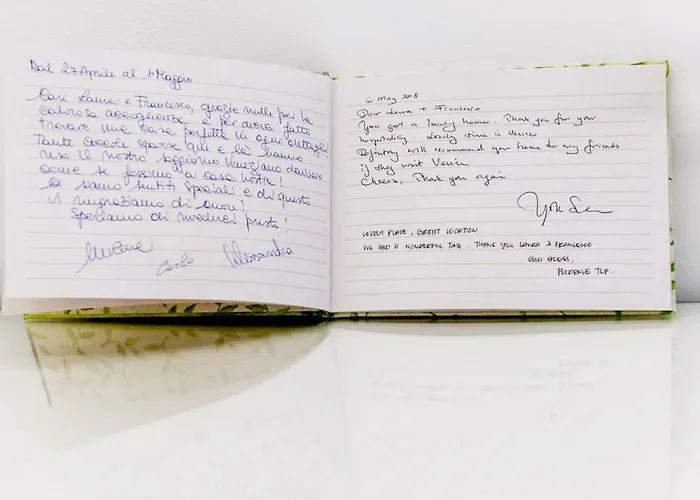 Dal 27 Aprile al 1 Maggio
Cari Laura e Francesco, grazie mille per la
calorosa accoglienza e per averci fatto
trovare una casa perfetta in ogni dettaglio.
Tante coccole sparse qui e là hanno
reso il nostro soggiorno veneziano davvero
come se fossimo a casa nostra!
Ci siamo sentiti speciali e di questo
vi ringraziamo di cuore!
Speriamo di rivederci presto!
Carlo Alessandra
6 May 2018
Dear Laura + Francesco
You got a lovely home. Thank you for your
hospitality during time in Venice
Definitely will recommend your home to my friends
if they visit Venice
Cheers, Thank you again
LOVELY PLACE, GREAT LOCATION
WE HAD A WONDERFUL TIME. THANK YOU LAURA & FRANCESCO
GOD BLESS,
FLORENCE TLP.